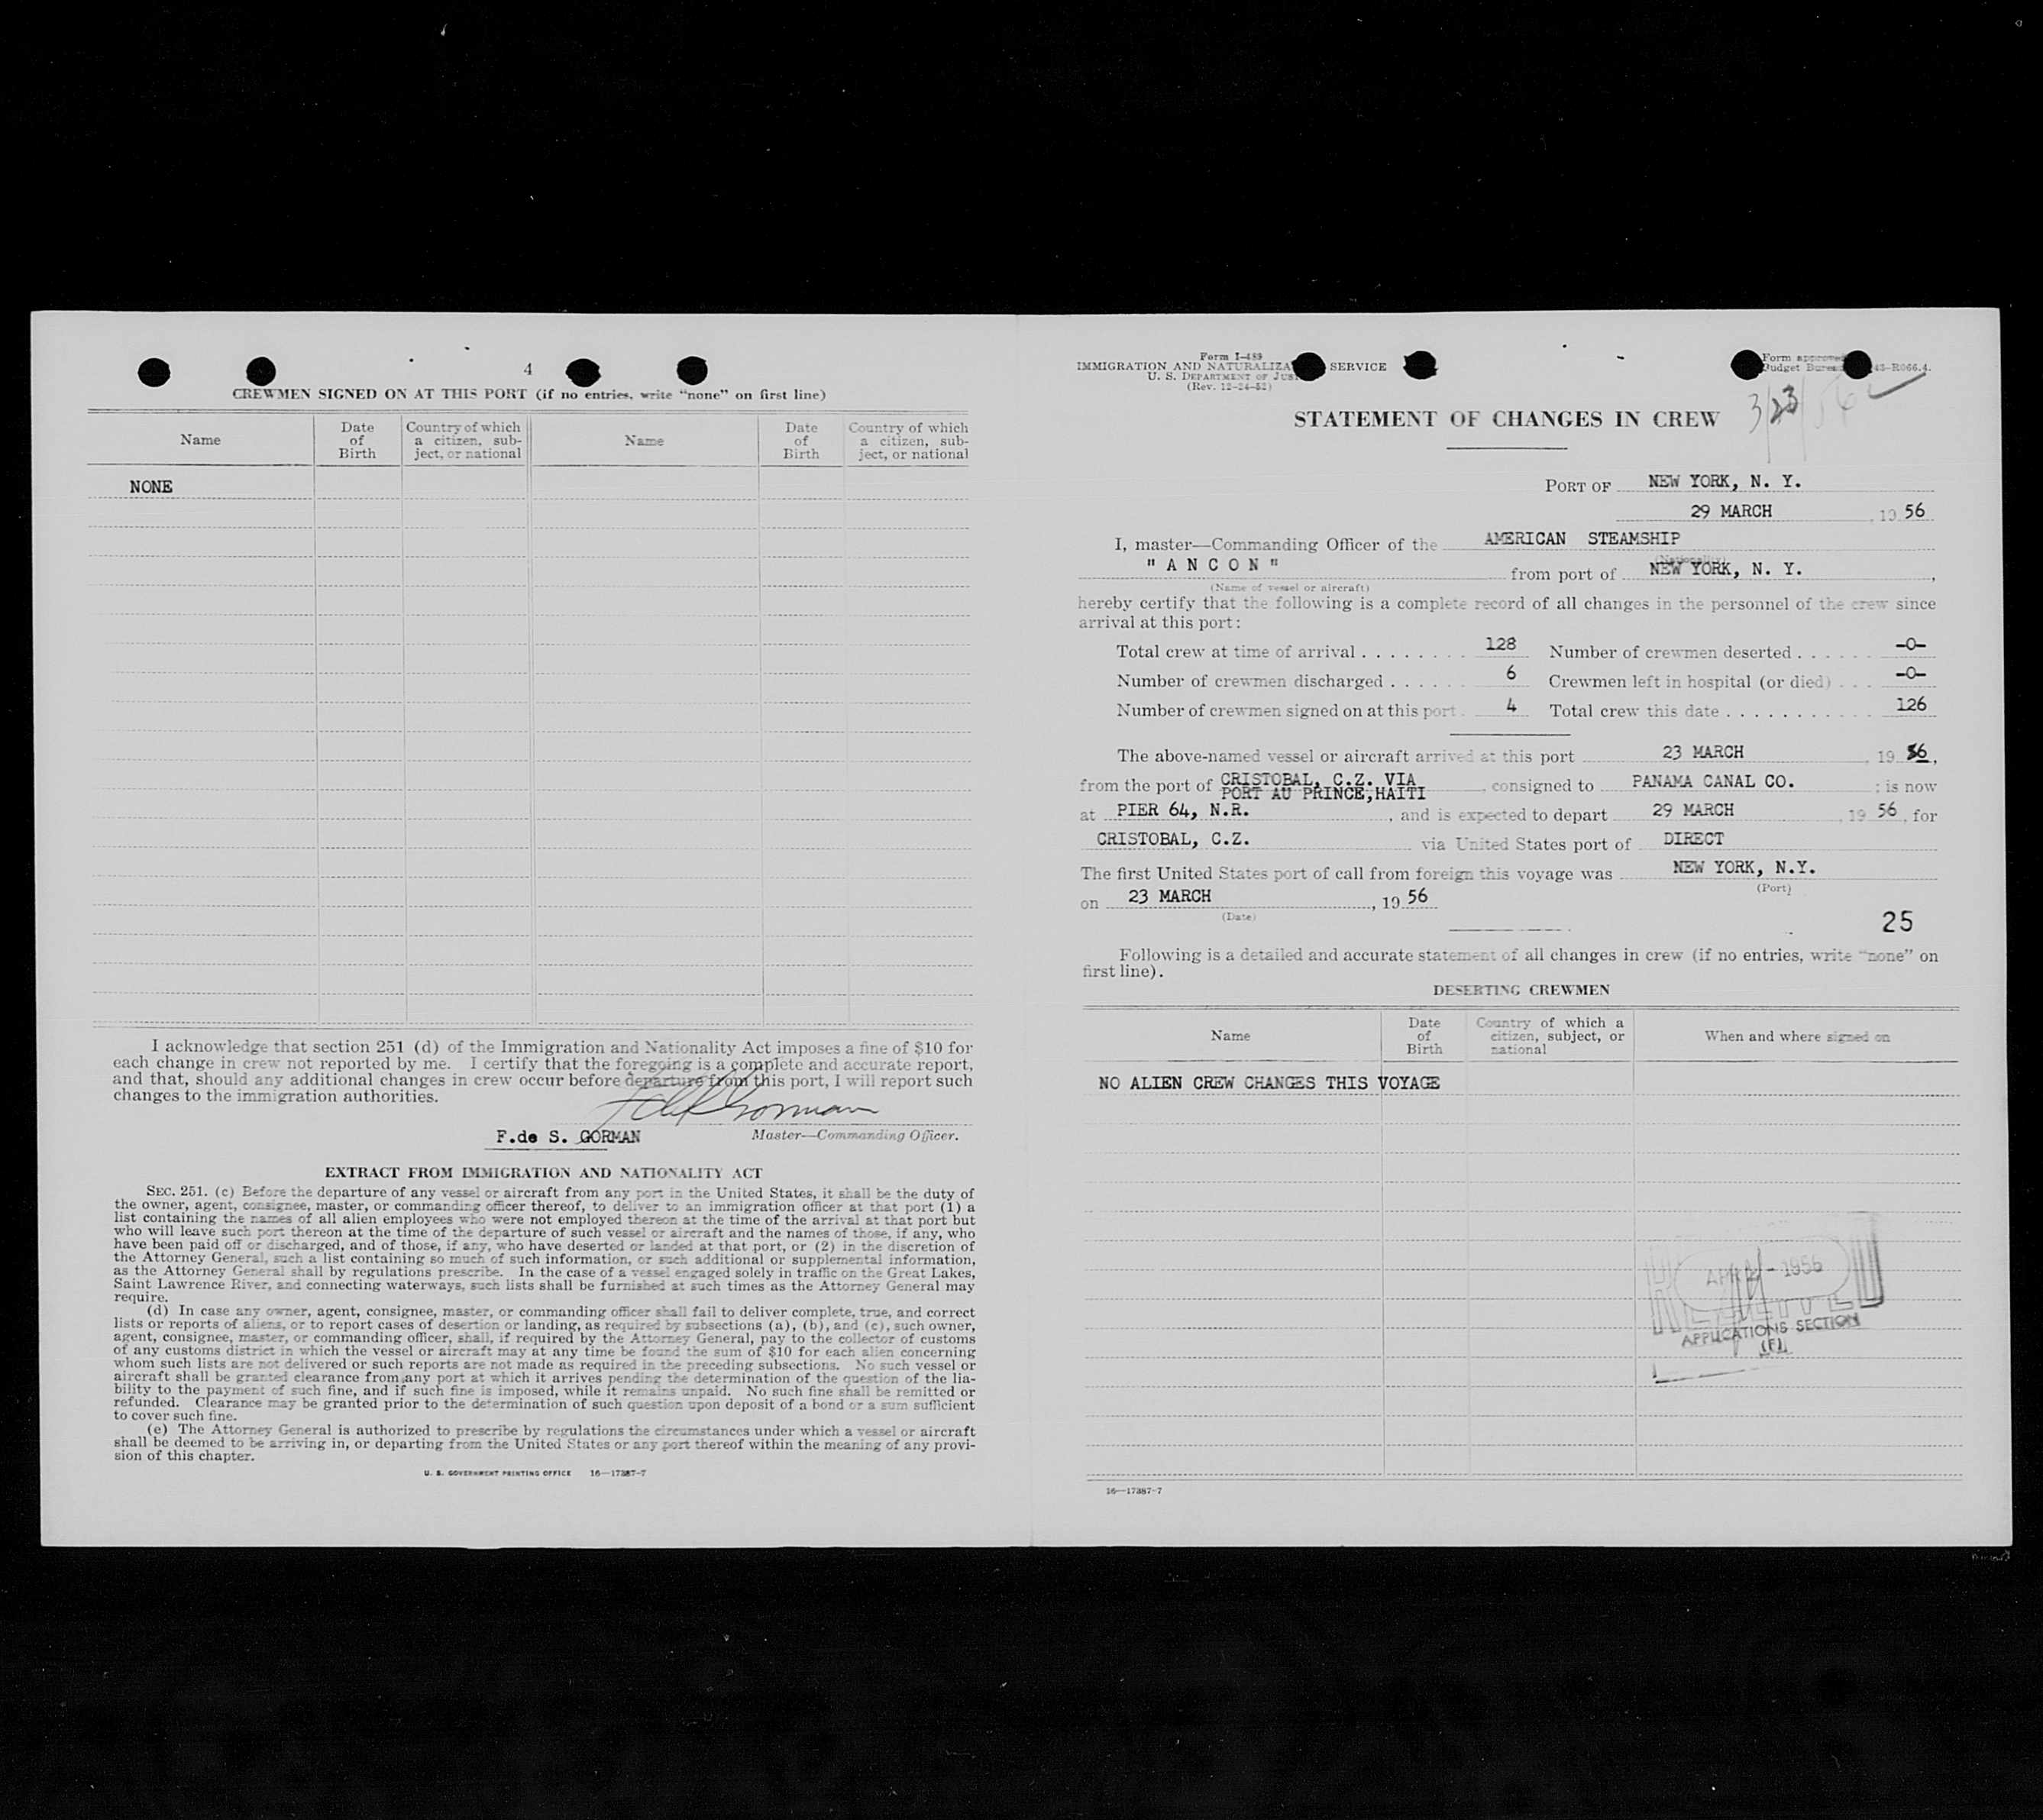 4
CREWMEN SIGNED ON AT THIS PORT (if no entries, write "none" on first line)
Name
Date of Birth
Country of which a citizen, subject, or national
Name
Date of Birth
Country of which a citizen, subject, or national
NONE
I acknowledge that section 251 (d) of the Immigration and Nationality Act imposes a fine of $10 for
each change in crew not reported by me. I certify that the foregoing is a complete and accurate report,
and that, should any additional changes in crew occur before departure from this port, I will report such
changes to the immigration authorities.
F.de S. GORMAN
Master—Commanding Officer.
EXTRACT FROM IMMIGRATION AND NATIONALITY ACT
SEC. 251. (c) Before the departure of any vessel or aircraft from any port in the United States, it shall be the duty of
the owner, agent, consignee, master, or commanding officer thereof, to deliver to an immigration officer at that port (1) a
list containing the names of all alien employees who were not employed thereon at the time of the arrival at that port but
who will leave such port thereon at the time of the departure of such vessel or aircraft and the names of those, if any, who
have been paid off or discharged, and of those, if any, who have deserted or landed at that port, or (2) in the discretion of
the Attorney General, such a list containing so much of such information, or such additional or supplemental information,
as the Attorney General shall by regulations prescribe. In the case of a vessel engaged solely in traffic on the Great Lakes,
Saint Lawrence River, and connecting waterways, such lists shall be furnished at such times as the Attorney General may
require.
(d) In case any owner, agent, consignee, master, or commanding officer shall fail to deliver complete, true, and correct
lists or reports of aliens, or to report cases of desertion or landing, as required by subsections (a), (b), and (c), such owner,
agent, consignee, master, or commanding officer, shall, if required by the Attorney General, pay to the collector of customs
of any customs district in which the vessel or aircraft may at any time be found the sum of $10 for each alien concerning
whom such lists are not delivered or such reports are not made as required in the preceding subsections. No such vessel or
aircraft shall be granted clearance from any port at which it arrives pending the determination of the question of the lia-
bility to the payment of such fine, and if such fine is imposed, while it remains unpaid. No such fine shall be remitted or
refunded. Clearance may be granted prior to the determination of such question upon deposit of a bond or a sum sufficient
to cover such fine.
(e) The Attorney General is authorized to prescribe by regulations the circumstances under which a vessel or aircraft
shall be deemed to be arriving in, or departing from the United States or any port thereof within the meaning of any provi-
sion of this chapter.
U. S. GOVERNMENT PRINTING OFFICE 16—17387-7
Form I-489
IMMIGRATION AND SERVICE
U. S. DEPARTMENT OF
(Rev. 12-24-52)
Form approved
Budget R066.4.
3/23/56
STATEMENT OF CHANGES IN CREW
PORT OF NEW YORK, N. Y.
29 MARCH , 19 56
I, master—Commanding Officer of the AMERICAN STEAMSHIP
(Nationality)
" A N C O N " from port of NEW YORK, N. Y. ,
(Name of vessel or aircraft)
hereby certify that the following is a complete record of all changes in the personnel of the crew since
arrival at this port:
Total crew at time of arrival . . . . . . . . 128 Number of crewmen deserted . . . . . . -0-
Number of crewmen discharged . . . . . . 6 Crewmen left in hospital (or died) . . . -0-
Number of crewmen signed on at this port . 4 Total crew this date . . . . . . . . . . . 126
The above-named vessel or aircraft arrived at this port 23 MARCH , 19 56,
from the port of CRISTOBAL, C.Z. VIA PORT AU PRINCE,HAITI , consigned to PANAMA CANAL CO. ; is now
at PIER 64, N.R. , and is expected to depart 29 MARCH , 19 56 , for
CRISTOBAL, C.Z. via United States port of DIRECT
The first United States port of call from foreign this voyage was NEW YORK, N.Y.
(Port)
on 23 MARCH , 19 56
(Date)
25
Following is a detailed and accurate statement of all changes in crew (if no entries, write "none" on
first line).
DESERTING CREWMEN
Name
Date of Birth
Country of which a citizen, subject, or national
When and where signed on
NO ALIEN CREW CHANGES THIS VOYAGE
RECEIVED
APR - 1956
APPLICATIONS SECTION
(F)
16—17387-7